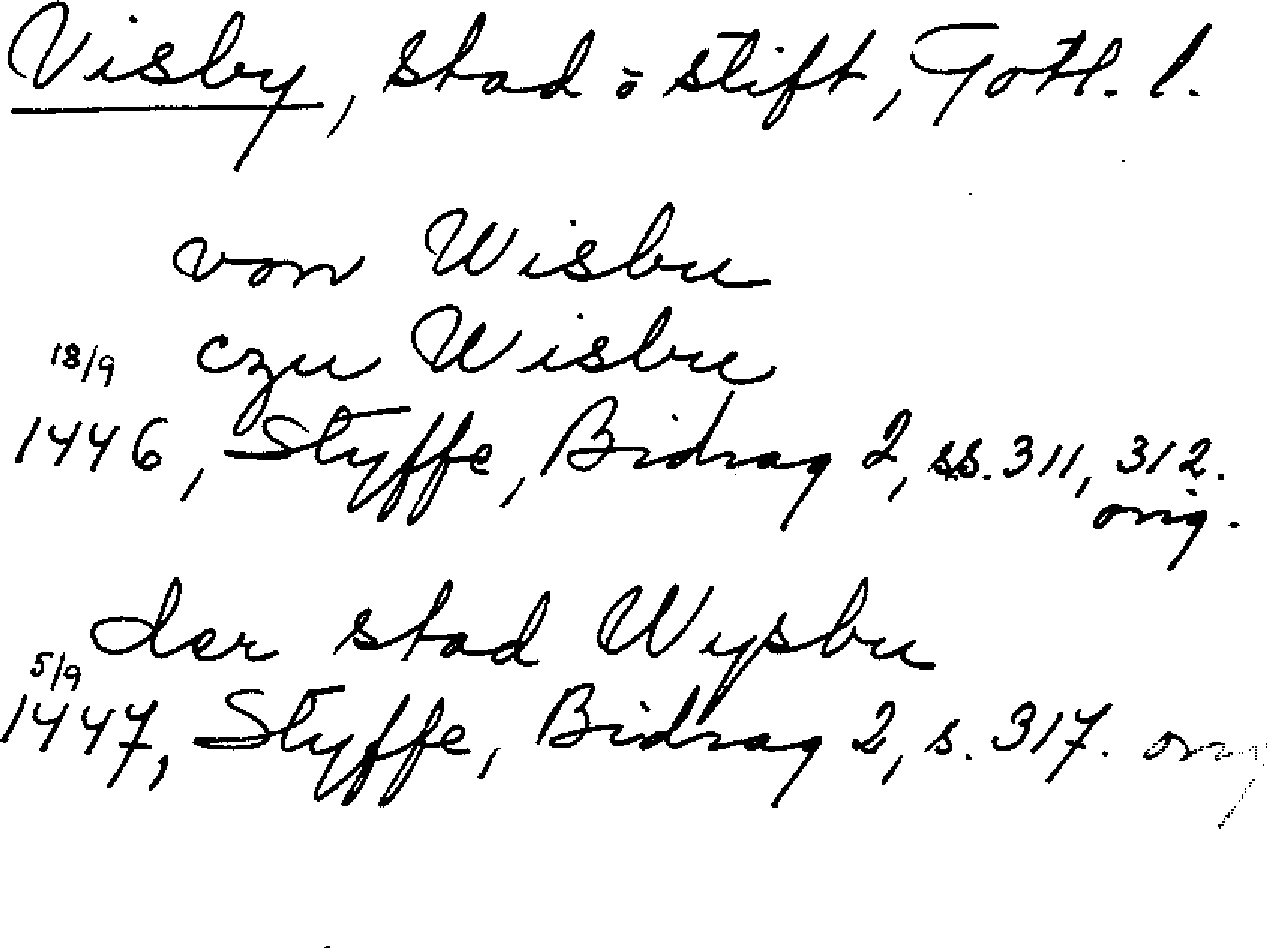 Visby, stad o stift, Gotl. l.
von Wisbu
czu Wisbu
18/9
1446, Styffe, Bidrag 2, ss. 311, 312.
orig.
der stad Wysbu
5/9
1447, Styffe, Bidrag 2, s. 317. orig